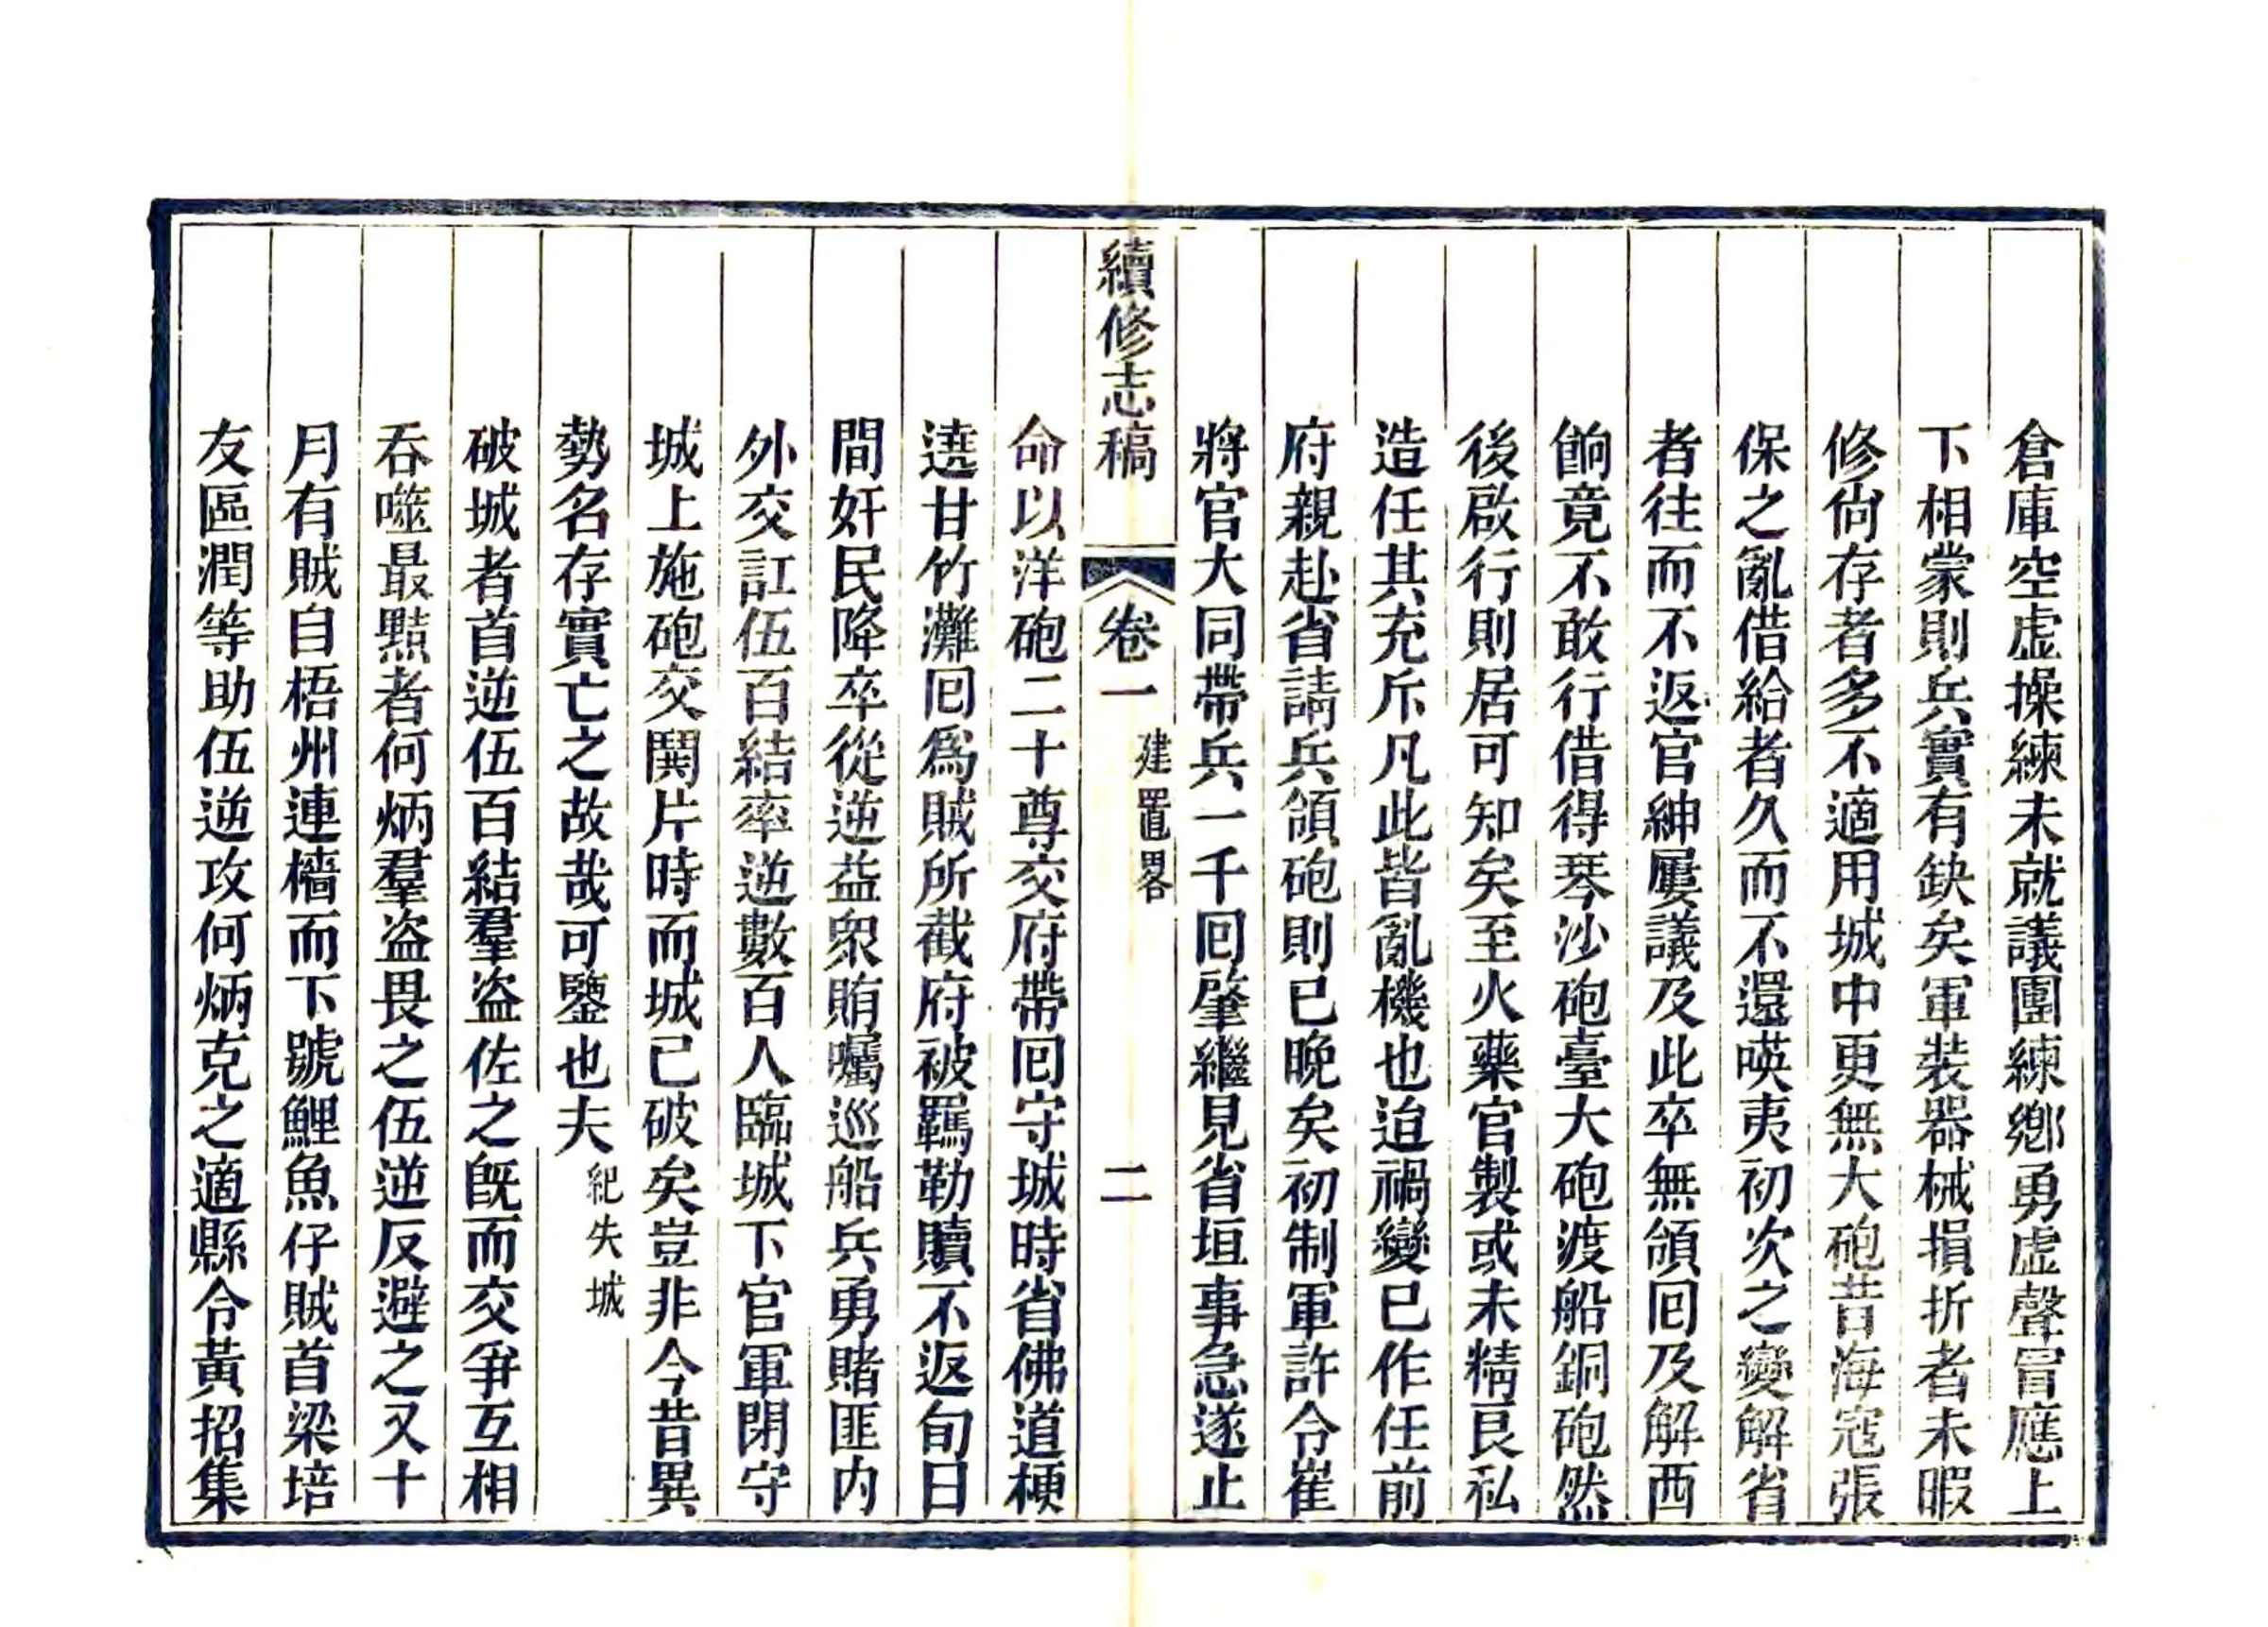 倉庫空虛操練未就議團練鄉勇虛聲冒應上
下相蒙則兵實有缺矣軍裝器械損折者未暇
修尙存者多不適用城中更無大砲昔海寇張
保之亂借給者久而不還暎夷初次之變解省
者往而不返官紳屢議及此卒無領回及解西
餉竟不敢行借得琴沙砲臺大砲渡船銅砲然
後啟行行則居可知矣至火藥官製或未精良私
造任其充斥凡此皆亂機也迨禍變已作任前
府親赴省請兵領砲則已晚矣初制軍許令崔
將官大同帶兵一千回肇繼見省垣事急遂止
續修志稿
卷一
建置畧
二
命以洋砲二十尊交府帶回守城時省佛道梗
遶甘竹灘回爲賊所截府被羈勒贖不返旬日
間奸民降卒從逆益衆賄囑巡船兵勇賭匪內
外交訌伍百結率逆數百人臨城下官軍閉守
城上施砲交鬨片時而城已破矣豈非今昔異
勢名存實亡之故哉可鑒也夫 紀失城
破城者首逆伍百結羣盜佐之旣而交爭互相
吞噬最黠者何炳羣盜畏之伍逆反避之又十
月有賊自梧州連檣而下號鯉魚仔賊首梁培
友區潤等助伍逆攻何炳克之適縣令黃招集